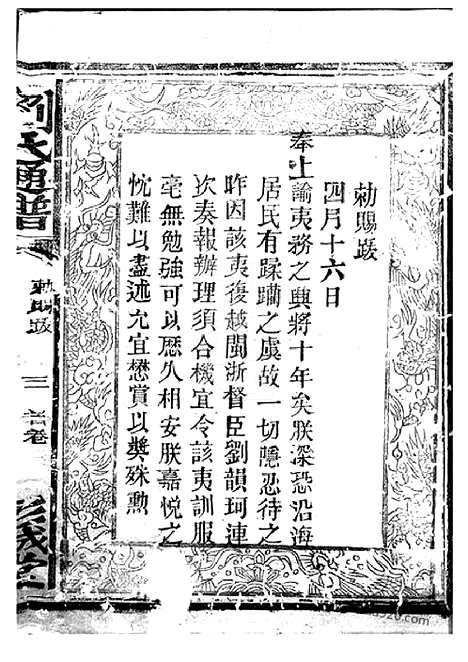 勅賜跋
四月十六日
奉上諭夷務之興將十年矣朕深恐沿海
居民有蹂躪之虞故一切隱忍待之
昨因該夷後越閩浙督臣劉韻珂連
次奏報辦理須合機宜令該夷訓服
毫無勉強可以歷久相安朕嘉悅之
忱難以盡述允宜懋賞以獎殊勳
劉氏通譜
勅賜跋
三
首卷
彭城堂